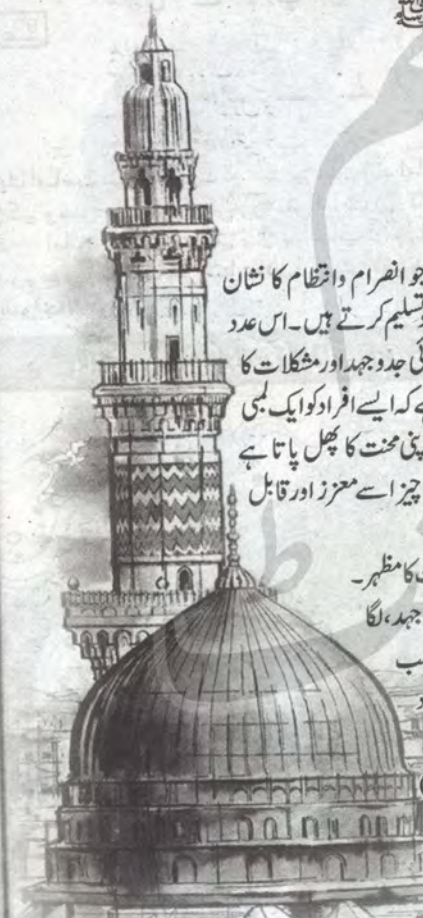 ﷺ
جو انصرام وانتظام کا نشان
تسلیم کرتے ہیں۔اس عدد
جدوجہد اور مشکلات کا
کہ ایسے افراد کو ایک لمبی
اپنی محنت کا پھل پاتا ہے
چیز اسے معزز اور قابل
کا مظہر۔
جہد، لگا